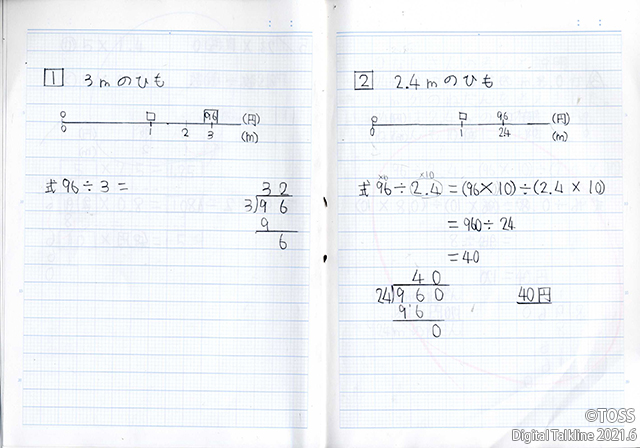 1 3mのひも
0 □ 96 (円)
0 1 2 3 (m)
式 96÷3=
32
3)96
9
6
2 2.4mのひも
0 □ 96 (円)
0 1 24 (m)
×10 ×10
式 96÷2.4=(96×10)÷(2.4×10)
=960÷24
=40
40
24)960
96
0
40円
©TOSS
Digital Talkline 2021.6